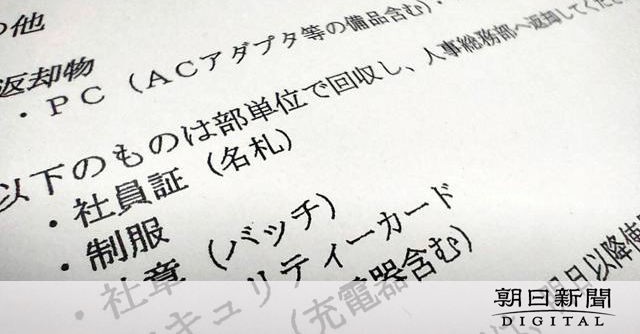 の他
返却物
・PC（ACアダプタ等の備品含む）・
以下のものは部単位で回収し、人事総務部へ返却してくださ
・社員証（名札）
・制服
・社章（バッチ）
キュリティーカード
（充電器含む）
明日以降使
朝日新聞
DIGITAL